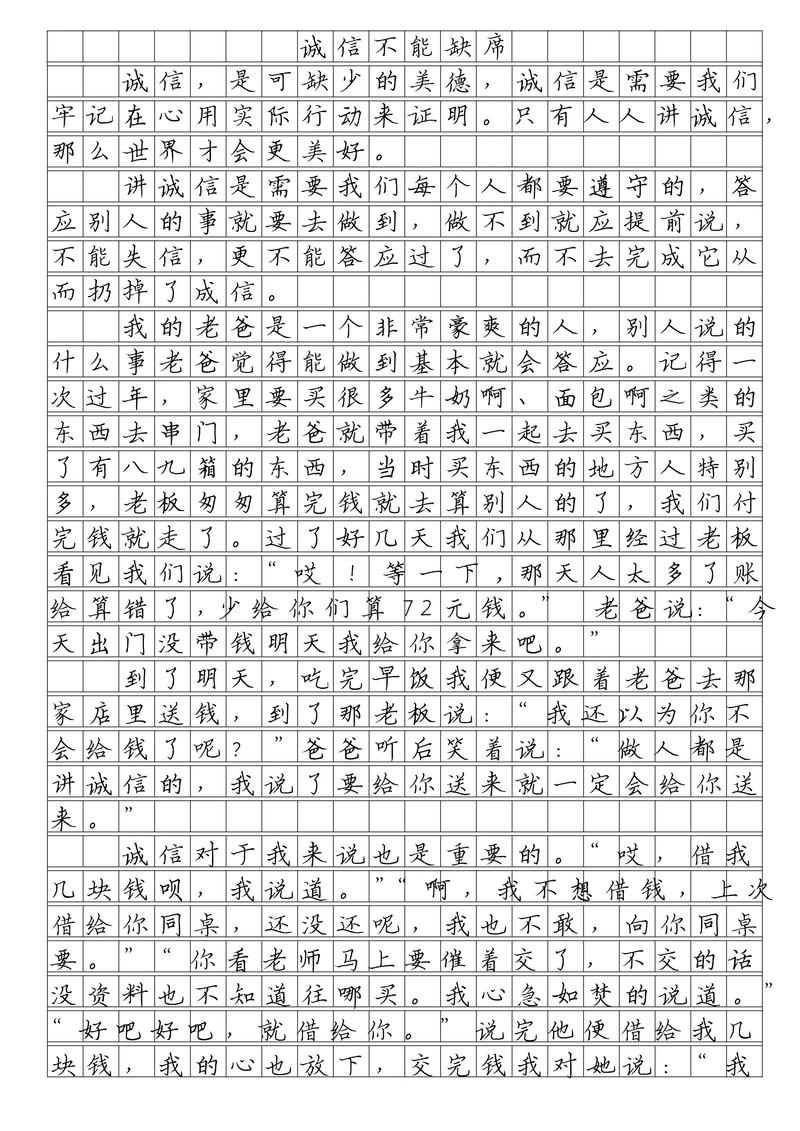 诚信不能缺席
诚信，是可缺少的美德，诚信是需要我们
牢记在心用实际行动来证明。只有人人讲诚信，
那么世界才会更美好。
讲诚信是需要我们每个人都要遵守的，答
应别人的事就要去做到，做不到就应提前说，
不能失信，更不能答应过了，而不去完成它从
而扔掉了成信。
我的老爸是一个非常豪爽的人，别人说的
什么事老爸觉得能做到基本就会答应。记得一
次过年，家里要买很多牛奶啊、面包啊之类的
东西去串门，老爸就带着我一起去买东西，买
了有八九箱的东西，当时买东西的地方人特别
多，老板匆匆算完钱就去算别人的了，我们付
完钱就走了。过了好几天我们从那里经过老板
看见我们说：“哎！等一下，那天人太多了账
给算错了，少给你们算72元钱。”老爸说：“今
天出门没带钱明天我给你拿来吧。”
到了明天，吃完早饭我便又跟着老爸去那
家店里送钱，到了那老板说：“我还以为你不
会给钱了呢？”爸爸听后笑着说：“做人都是
讲诚信的，我说了要给你送来就一定会给你送
来。”
诚信对于我来说也是重要的。“哎，借我
几块钱呗，我说道。”“啊，我不想借钱，上次
借给你同桌，还没还呢，我也不敢，向你同桌
要。”“你看老师马上要催着交了，不交的话
没资料也不知道往哪买。我心急如焚的说道。”
“好吧好吧，就借给你。”说完他便借给我几
块钱，我的心也放下，交完钱我对她说：“我